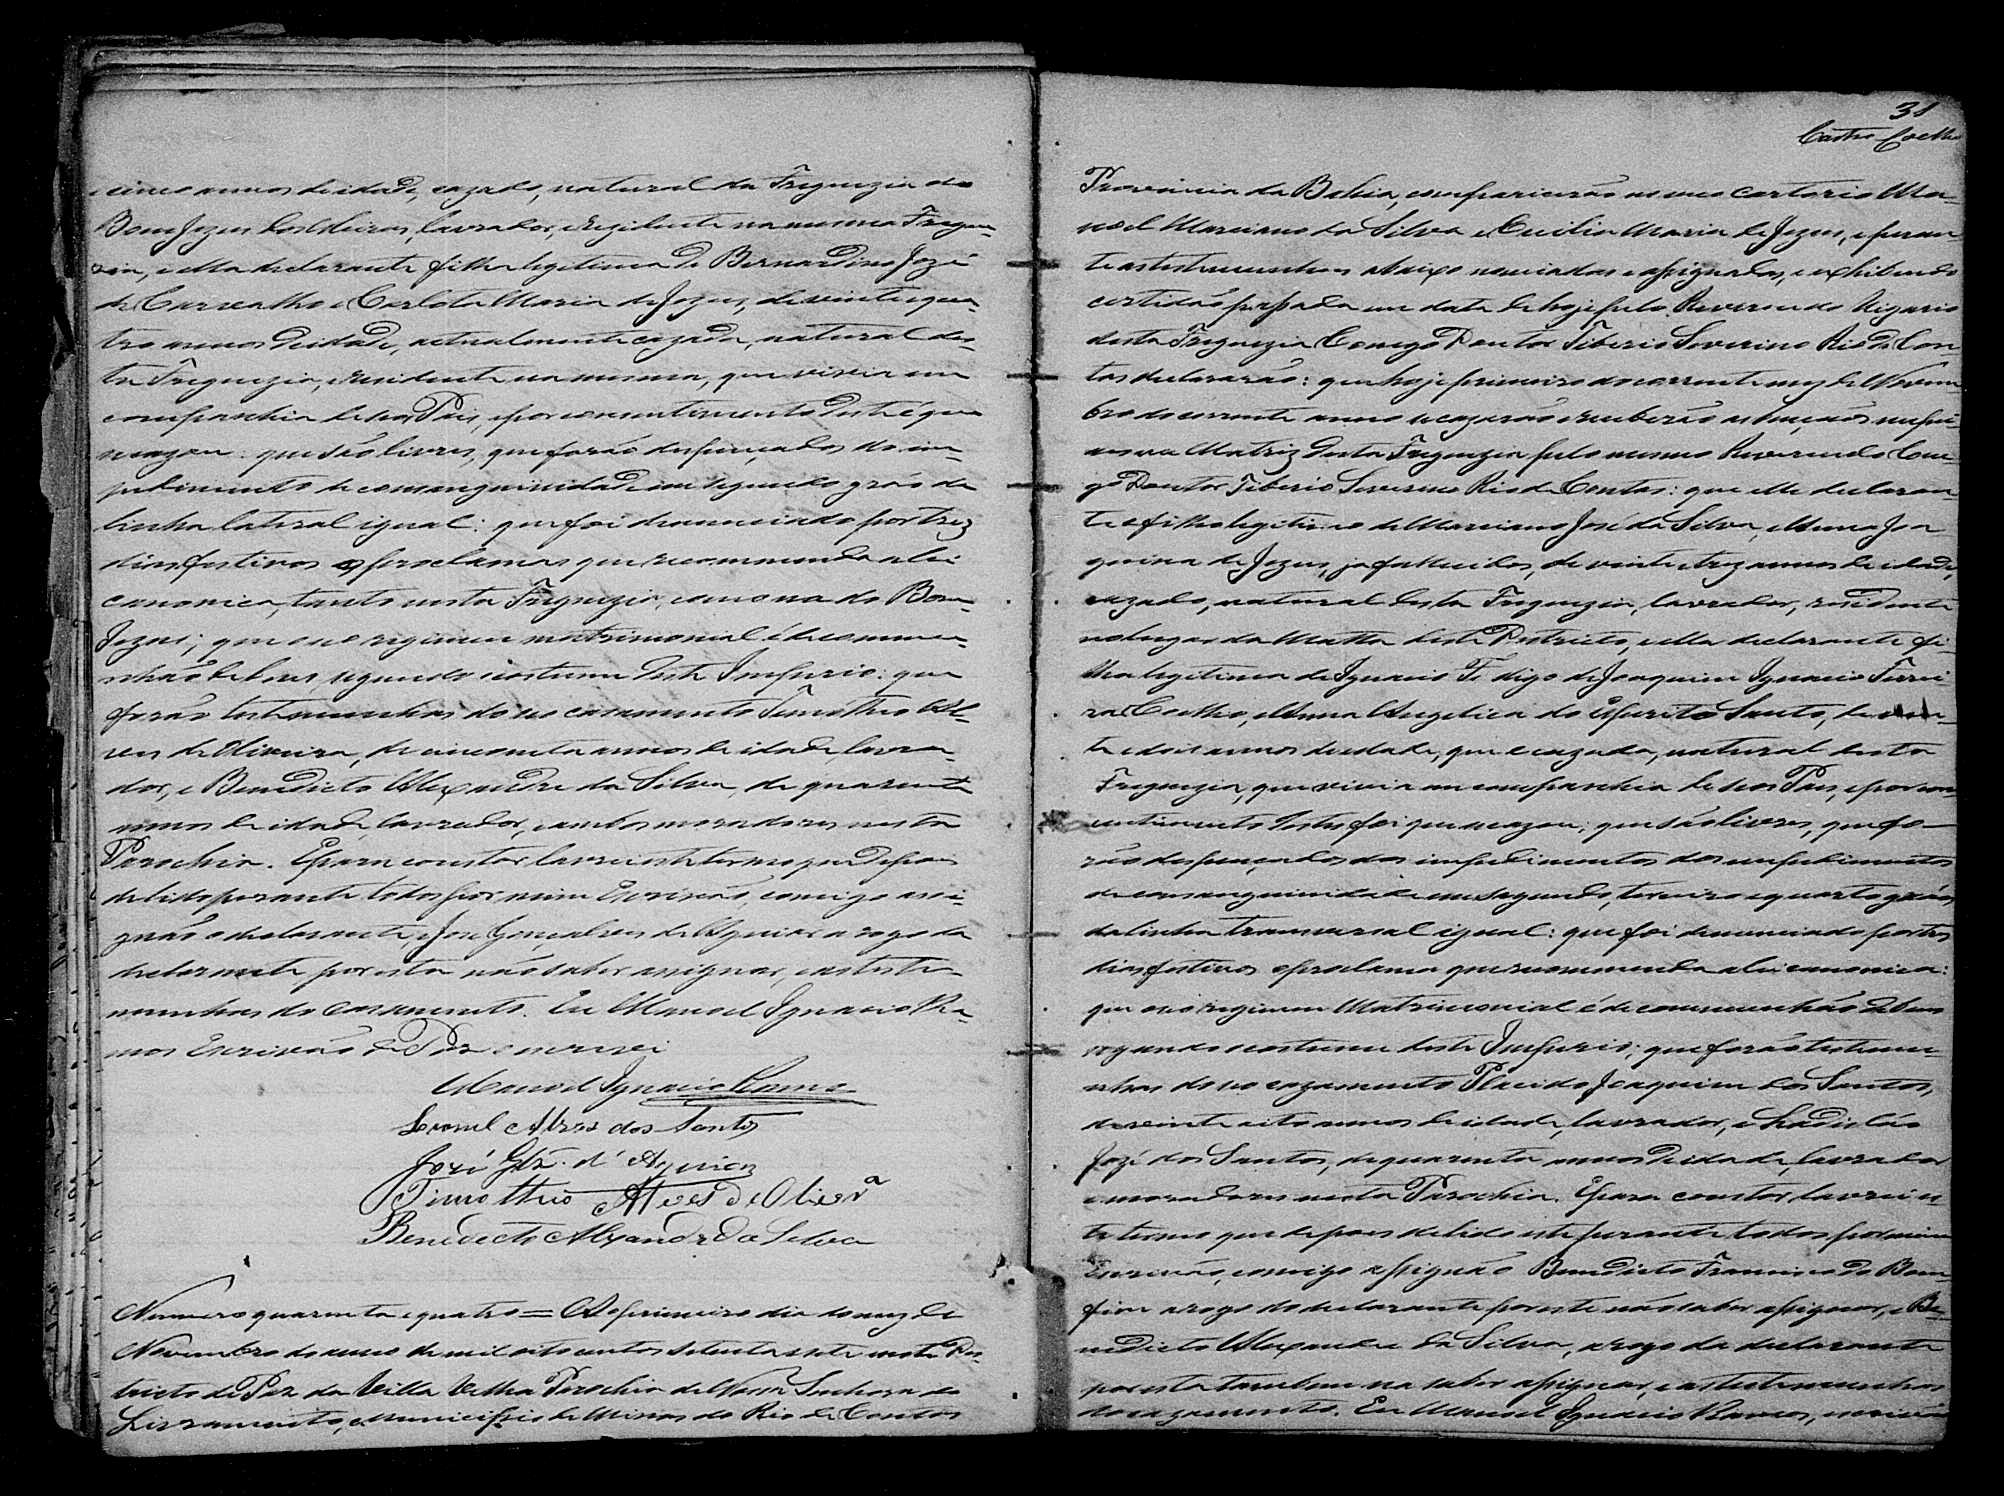 e cinco annos de idade, cazado, natural da Freguezia do
Bom Jezus dos Meiras, lavrador, e rezidente na mesma Fregue-
zia, e ella declarante filha legitima de Bernardino Jozé
de Carvalho e Carlota Maria de Jezus, de vinte e qua-
tro annos de idade, actualmente cazada, natural des-
ta Freguezia, e rezidente na mesma, que vivia em
companhia de seos Pais, e por consentimento deste é que
se cazou: que são livres, que forão despençados do im-
pedimento de consanguinidade em segundo gráo da
linha lateral igual: que foi denunciado por trez
dias festivos os proclamas que recommenda a lei
canonica, tanto nesta Freguezia, como na do Bom
Jezus; que o seo regimen matrimonial é de commu-
nhão de bens segundo o costume deste Imperio: que
forão testemunhas do seo casamento Timotheo Al-
ves de Oliveira, de cincoenta annos de idade, lavra-
dor, e Benedicto Alexandre da Silva, de quarenta
annos de idade, lavrador, e ambos moradores nesta
Parochia. E para constar lavrei este termo que depois
de lido perante todos por mim Escrivão, comigo assi-
gnão o declarante, e José Gonçalves de Aguiar a rogo da
declarante por esta não saber assignar, e as teste-
munhas do casamento. Eu Manoel Ignacio Ra-
mos Escrivão de Paz o escrevi
Manoel Ignacio Ramos
Leonel Alves dos Santos
José Glz. d'Aguiar
Timotheo Alves de Olivrª
Benedicto Alexandre da Silva
Numero quarenta e quatro = Ao primeiro dia do mez de
Novembro do anno de mil oito centos setenta e sete neste Des-
tricto de Paz da Villa Velha Parochia de Nossa Senhora do
Livramento, e Municipio de Minas do Rio de Contas
31
Castro Coelho
Provincia da Bahia, comparicerão no meo cartorio Ma-
noel Marciano da Silva e Cecilia Maria de Jezus, e peran-
te as testemunhas abaixo nomiadas e assignadas, e exhibindo
certidão passada em data de hoje pelo Reverendo Vigario
desta Freguezia Conego Doutor Tiberio Severino Rio de Con-
tas declararão: que hoje primeiro do corrente mez de Novem-
bro do corrente anno se cazarão e receberão as bençãos nupci-
aes na Matriz desta Freguezia pelo mesmo Reverendo Cone-
go Doutor Tiberio Severino Rio de Contas: que elle declaran-
te é filho legitimo de Marciano José da Silva, e Anna Joa-
quina de Jezus, ja fallecidos, de vinte e trez annos de idade,
cazado, natural desta Freguezia, lavrador, residente
no lugar da Matta deste Destricto, e ella declarante fi-
lha legitima de Ignacio Fe digo de Joaquim Ignacio Ferrei-
ra Coelho, e Anna Angelica do Espirito Santo, de vin-
te e dois annos de idade, que é cazada, natural desta
Freguezia, que vivia em companhia de seos Pais, e por con-
sentimento destes foi que se cazou; que são livres, que fo-
rão despençados dos impedimentos dos impedimentos
de consanguinidade em segundo, terceiro e quarto gráos
da linha transversal igual: que foi denunciado por tres
dias festivos o proclama que recommenda a lei canonica:
que o seo regimem Matrimonial é de communhão de bens
segundo o costume deste Imperio; que forão testemu-
nhas do seo cazamento Placido Joaquim dos Santos,
de vinte e oito annos de idade, lavrador, e Ladislão
Jozé dos Santos, de quarenta annos de idade, lavrador
e moradores nesta Parochia. E para constar, lavrei es-
te termo que depois de lido este perante todos por mim
Escrivão, comigo assignão Benedicto Francisco do Bom-
fim a rogo do declarante por este não saber assignar, e Be-
nedicto Alexandre da Silva, a rogo da declarante
por esta tambem na saber assignar, e as testemunhas
do cazamento. Eu Manoel Ignacio Ramos, escrivão